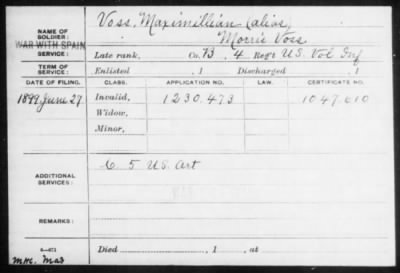 NAME OF SOLDIER: Voss, Maximillian (alias,
WAR WITH SPAIN Morris Voss
SERVICE: Late rank, Co. B, 4 Reg't U.S. Vol. Inf
TERM OF SERVICE: Enlisted , 1 Discharged , 1
DATE OF FILING. CLASS. APPLICATION NO. LAW. CERTIFICATE NO.
1899 June 27. Invalid, 1230.473 1047.610
Widow,
Minor,
ADDITIONAL SERVICES: C. 5 U.S. Art
REMARKS:
6—671 Died , 1 , at